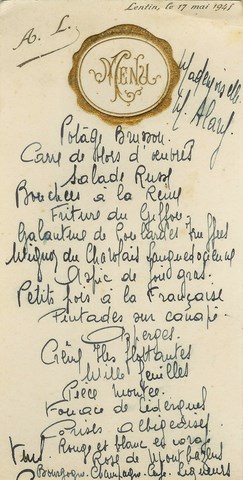 Lentin, le 17 mai 1941
A. L.
MENU
Mademoiselle
M. Alary
Potage Brusson
Carre de Hors d'œuvres
Salade Russe
Bouchées à la Reine
Friture du Giffou
Galantine de Poulardes truffées
Mignon du Charolais Languedocienne
Aspic de foie gras
Petits pois à la Française
Pintades sur canapé
Asperges
Crème Iles flottantes
Mille feuilles
Pièce montée
Fouace de Cédergues
Cerises
Rouge et blanc
Vins Rose de
Bourgogne. Champagne. Café. Liqueurs